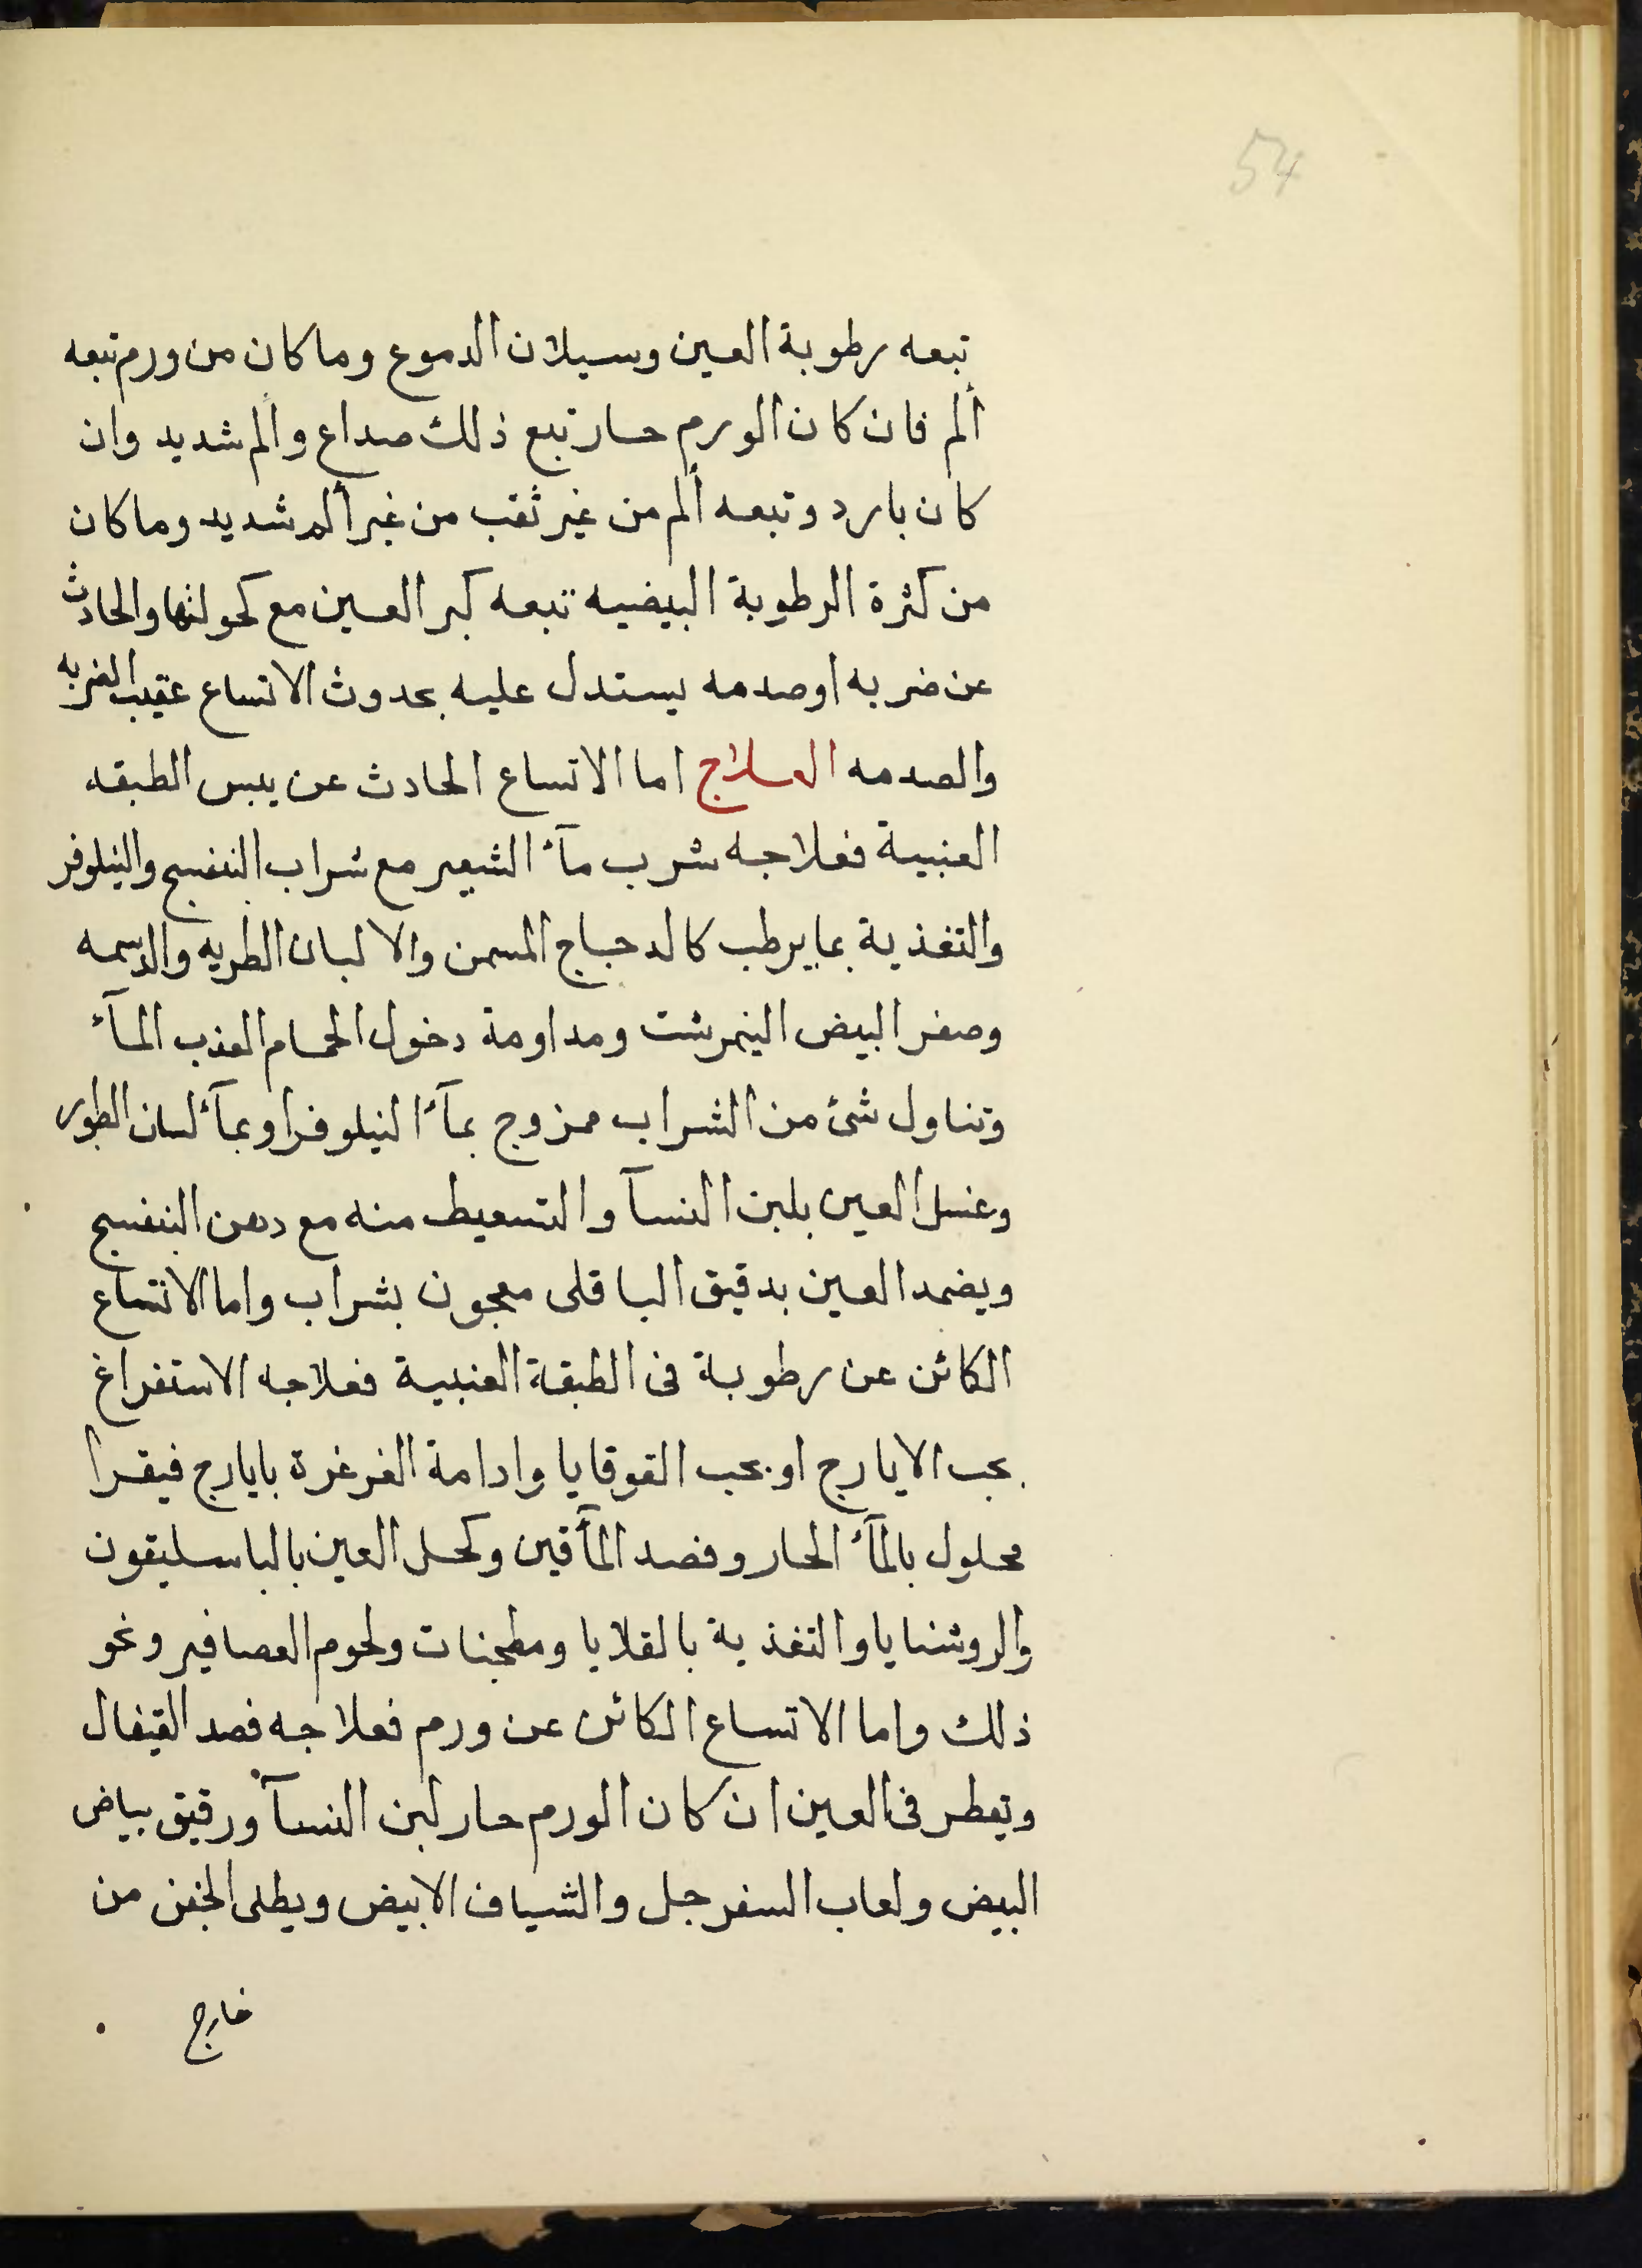 54
تبعه رطوبة العين وسيلان الدموع وما كان من ورم تبعه
ألم فان كان الورم حار تبع ذلك صداع وألم شديد وان
كان بارد وتبعه ألم من غير ثقب من غير ألم شديد وما كان
من كثرة الرطوبة البيضيه تبعه كبر العين مع كحولتها والحادث
عن ضربه اوصدمه يستدل عليه بحدوث الاتساع عقيب الضربه
والصدمه العلاج اما الاتساع الحادث عن يبس الطبقه
العنبية فعلاجه شرب مآء الشعير مع شراب البنفسج والنيلوفر
والتغذية بما يرطب كالدجاج المسمن والالبان الطريه والدسمه
وصفر البيض النيمرشت ومداومة دخول الحمام العذب المآء
وتناول شئ من الشراب ممزوج بمآء النيلوفر او بمآء لسان الطور
وغسل العين بلبن النسآ والتسعيط منه مع دهن البنفسج
ويضمد العين بدقيق الباقلى معجون بشراب واما الاتساع
الكائن عن رطوبة فى الطبقة العنبية فعلاجه الاستفراغ
بحب الايارج او بحب القوقايا وادامة الغرغرة بايارج فيقرا
محلول بالمآء الحار وفصد المأقين وكحل العين بالباسليقون
والروشنايا والتغذية بالقلايا ومطجنات ولحوم العصافير ونحو
ذلك واما الاتساع الكائن عن ورم فعلاجه فصد القيفال
وتقطر فى العين ان كان الورم حار لبن النسآء ورقيق بياض
البيض ولعاب السفرجل والشياف الابيض ويطلى الجفن من
خارج